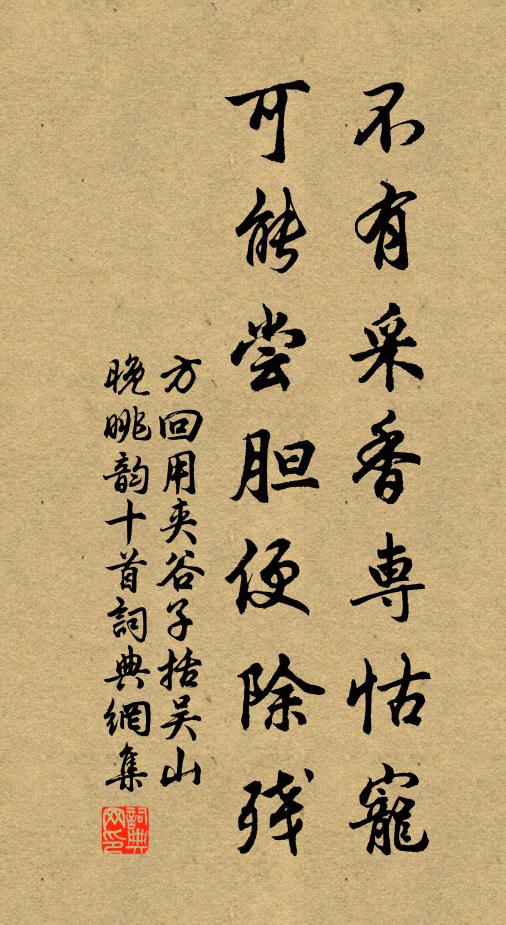 不有采香専怙寵
可能尝胆便除残
方回用夹谷子括吴山
晚眺韵十首詞典網集
詞典網印